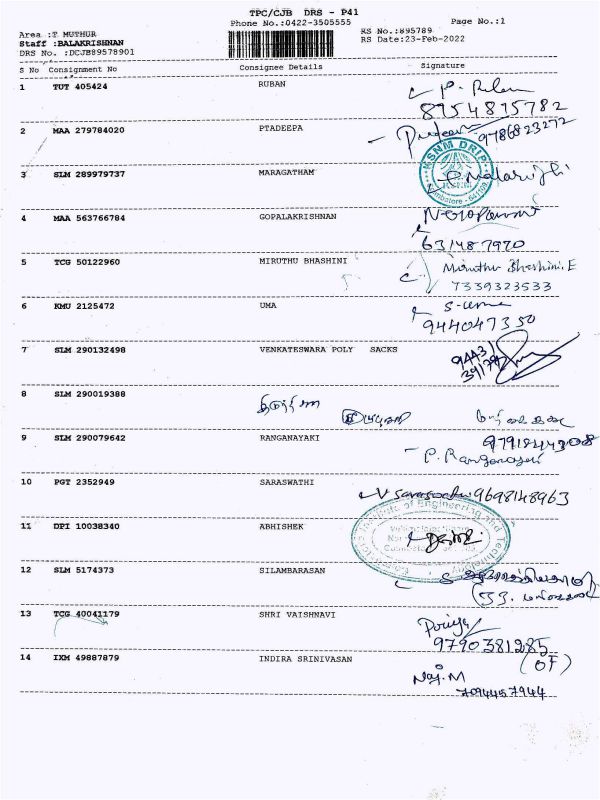 TPC/CJB DRS - P41
Phone No.:0422-3505555 Page No.:1
Area :T MUTHUR RS No.:895789
Staff :BALAKRISHNAN RS Date:23-Feb-2022
DRS No. :DCJB89578901
S No Consignment No Consignee Details Signature
1 TUT 405424 RUBAN
8954895782
2 MAA 279784020 PTADEEPA
9786823272
KSNM DRIP
3 SLM 289979737 MARAGATHAM
4 MAA 563766784 GOPALAKRISHNAN
631487970
5 TCG 50122960 MIRUTHU BHASHINI Miruthu Bhashini. E
7339323533
6 KMU 2125472 UMA S-uma
944047350
7 SLM 290132498 VENKATESWARA POLY SACKS
8 SLM 290019388
9 SLM 290079642 RANGANAYAKI
P. Ranganayaki
10 PGT 2352949 SARASWATHI
V Saraswathi 9698148963
Institute of Engineering and Technology
11 DPI 10038340 ABHISHEK
12 SLM 5174373 SILAMBARASAN
13 TCG 40041179 SHRI VAISHNAVI
Priya
9790381285
14 IXM 49887879 INDIRA SRINIVASAN (OF)
Naj. M
7094457944